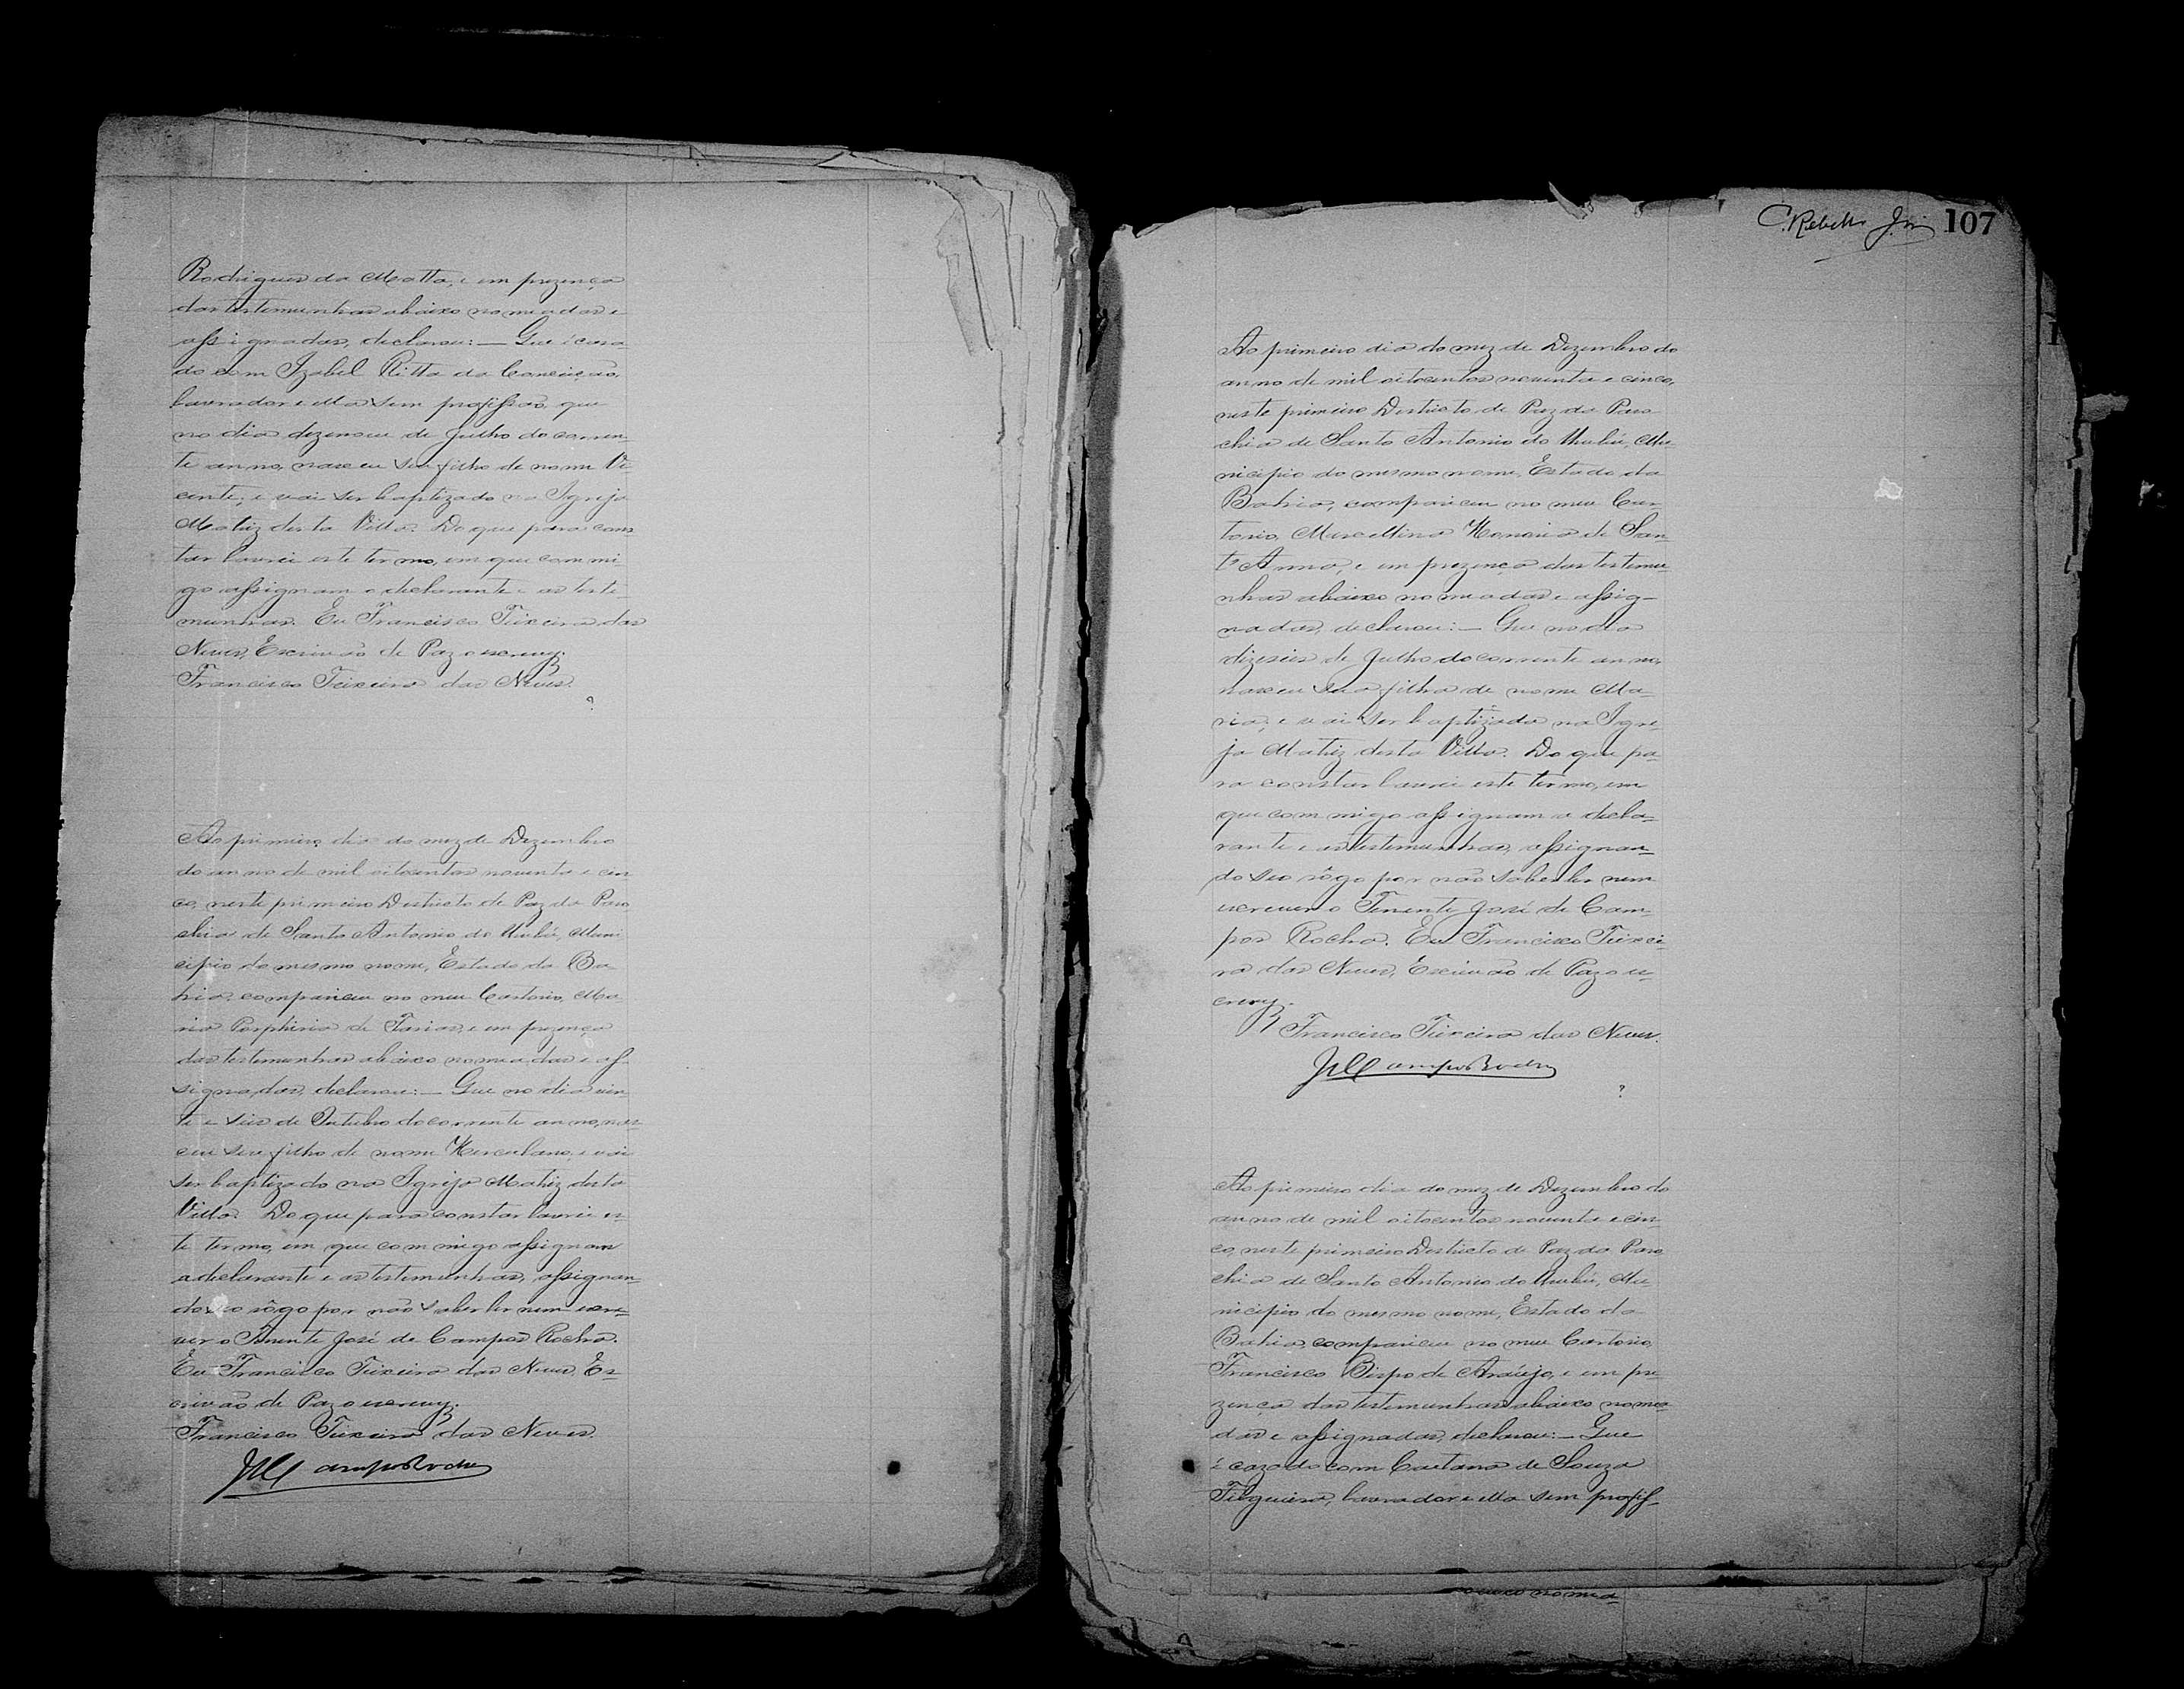 Rodrigues da Matta, e em prezença
das testemunhas abaixo nomeadas e
assignadas, declarou: — Que é casa
do com Izabel Ritta da Conceição,
lavrador e ella sem profissão, que
no dia dezenove de Julho do corren-
te anno, nasceu seu filho de nome Vi
cente; e vai ser baptizado na Igreja
Matriz desta Villa. Do que para cons
tar lavrei este termo, em que commi
go assignam o declarante e as teste-
munhas. Eu Francisco Teixeira das
Neves, Escrivão de Paz o escrevy.
Francisco Teixeira das Neves.
Ao primeiro dia do mez de Dezembro
do anno de mil oitocentos noventa e cin
co, neste primeiro Destricto de Paz da Paro
chia de Santo Antonio do Urubú, Muni
cipio do mesmo nome, Estado da Ba
hia, compareceu no meu Cartorio, Ma
ria Porphiria de Farias, e em prezença
das testemunhas abaixo nomeadas e as
signadas, declarou: — Que no dia vin
te e seis de Outubro do corrente anno, nas
ceu seu filho de nome Herculano, e vai
ser baptizado na Igreja Matriz desta
Villa. Do que para constar lavrei es-
te termo, em que commigo assignam
a declarante e as testemunhas, assignan-
do seo rôgo por não saber ler nem escre
ver o Tenente José de Campos Rocha.
Eu Francisco Teixeira das Neves, Es-
crivão de Paz o escrevy.
Francisco Teixeira das Neves.
JdeCamposRocha
C. Rebello J.or 107
Ao primeiro dia do mez de Dezembro do
anno de mil oitocentos noventa e cinco,
neste primeiro Destricto de Paz da Paro
chia de Santo Antonio do Urubú, Mu
nicipio do mesmo nome, Estado da
Bahia, compareceu no meu Car-
torio, Marcellina Honoria de San
t'Anna, e em prezença das testemu-
nhas abaixo nomeadas e assig-
nadas, declarou: — Que no dia
dizeseis de Julho do corrente anno,
nasceu sua filha de nome Ma-
ria, e vai ser baptizada na Igre-
ja Matriz desta Villa. Do que pa-
ra constar lavrei este termo, em
que commigo assignam a decla-
rante e as testemunhas, assignan-
do seo rôgo por não saber ler nem
escrever o Tenente José de Cam-
pos Rocha. Eu Francisco Teixei-
ra das Neves, Escrivão de Paz o es-
crevy.
Francisco Teixeira das Neves.
JdeCamposRocha
Ao primeiro dia do mez de Dezembro do
anno de mil oitocentos noventa e cin-
co, neste primeiro Destricto de Paz da Paro
chia de Santo Antonio do Urubú, Mu-
nicipio do mesmo nome, Estado da
Bahia, compareceu no meu Cartorio,
Francisco Bispo de Araújo, e em pre-
zença das testemunhas abaixo nomea
das e assignadas, declarou: — Que
é cazado com Caetana de Souza
Filgueira, lavrador e ella sem profis-
abaixo nomea